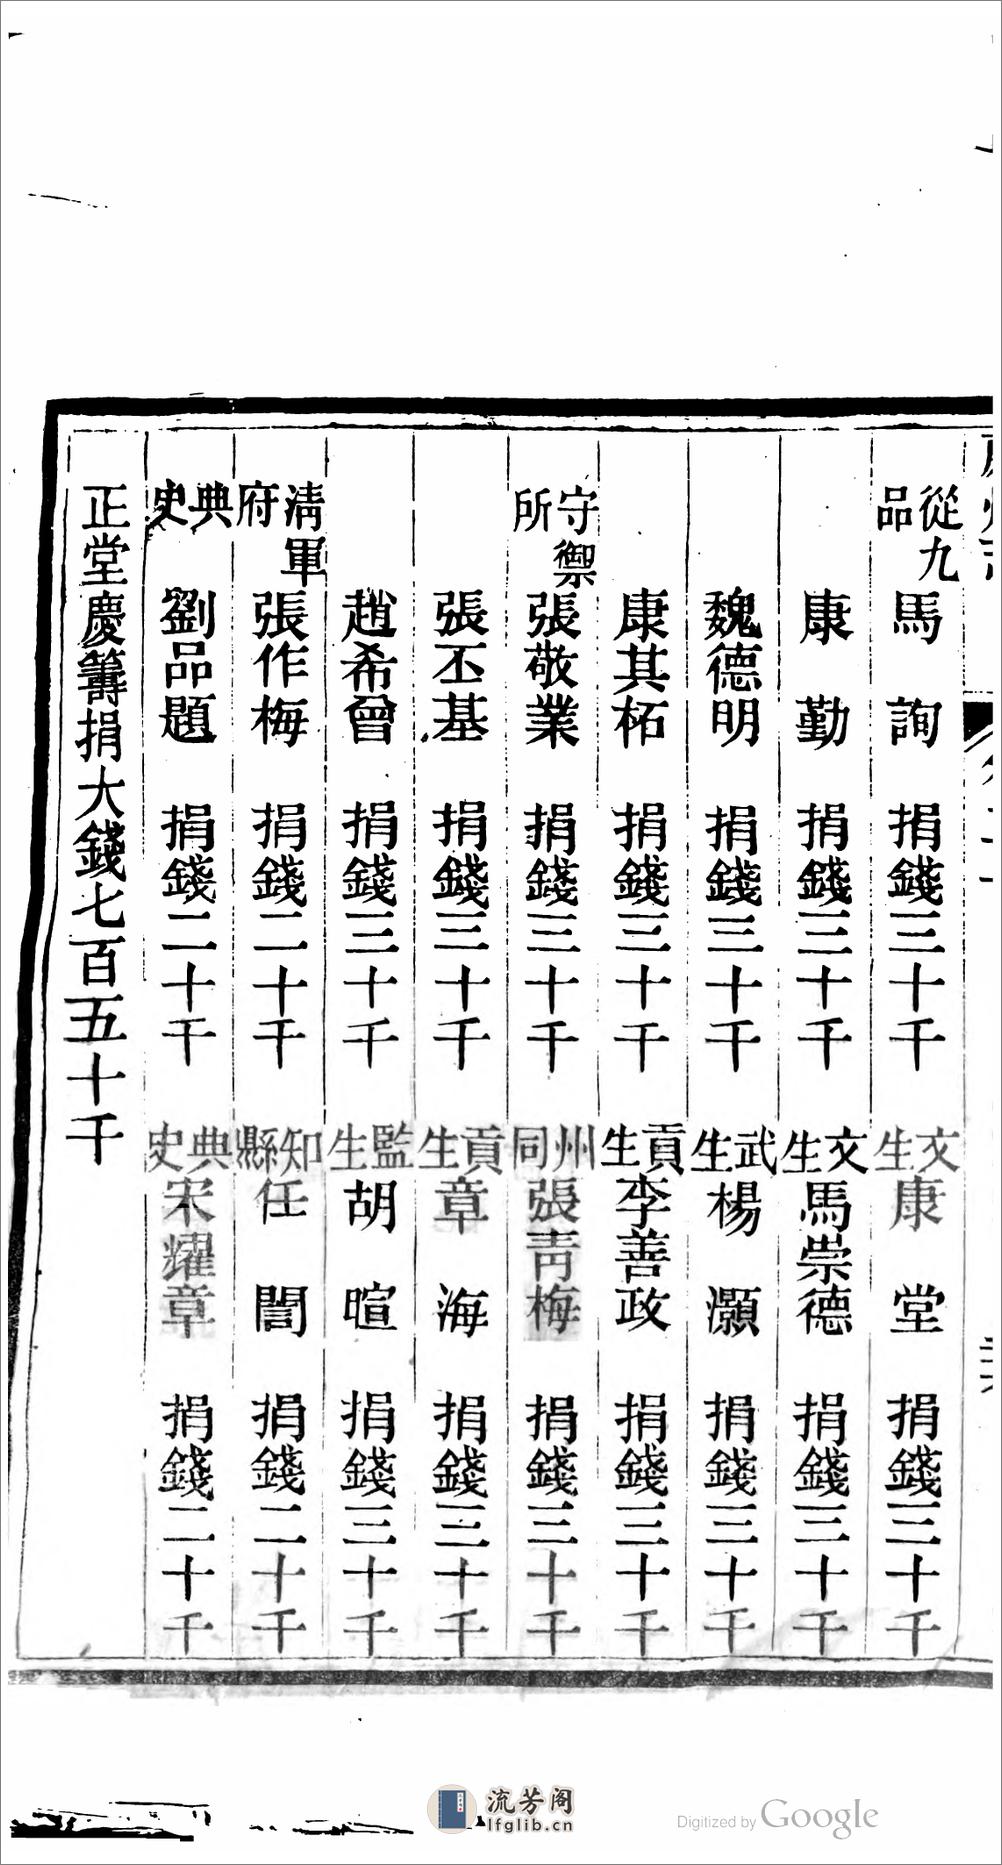 從九品 馬詢 捐錢三十千 文生 康堂 捐錢三十千
康勤 捐錢三十千 文生 馬崇德 捐錢三十千
魏德明 捐錢三十千 武生 楊灝 捐錢三十千
康其柘 捐錢三十千 貢生 李善政 捐錢三十千
守禦所 張敬業 捐錢三十千 州同 張青梅 捐錢三十千
張丕基 捐錢三十千 貢生 章海 捐錢三十千
趙希曾 捐錢三十千 監生 胡暄 捐錢三十千
清軍府 張作梅 捐錢二十千 知縣 任誾 捐錢二十千
典史 劉品題 捐錢二十千 典史 宋耀章 捐錢二十千
正堂慶籌捐大錢七百五十千
流芳阁
lfglib.cn
Digitized by Google